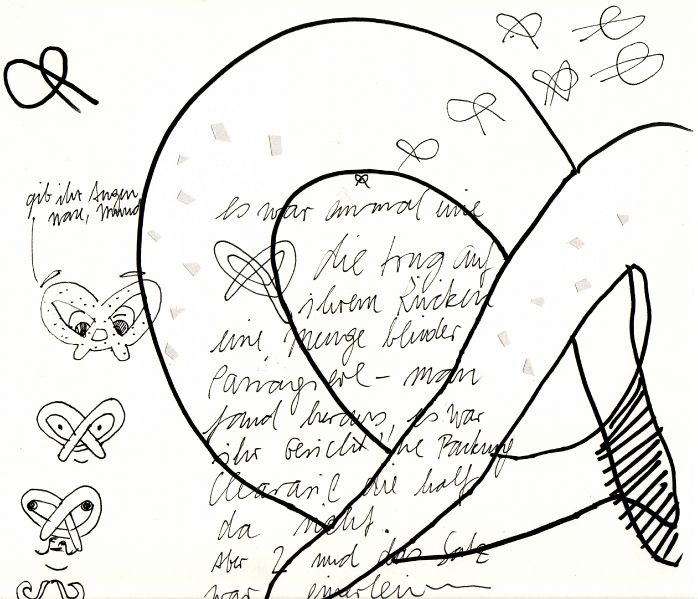 gib ihr Augen
nase, mund
es war einmal eine
die trug auf
ihrem Rücken
eine menge blinder
Passagiere - man
fand heraus, es war
ihr Gesicht, eine Packung
Clearasil die half
da nicht.
Aber 2 und das Salz
war einerlei